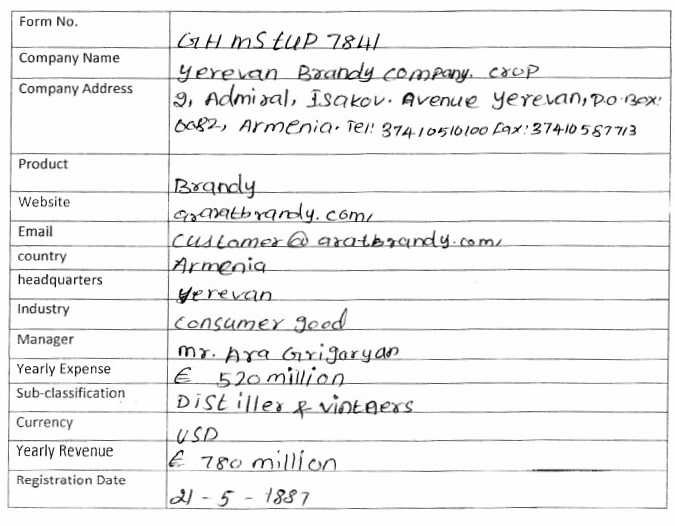 Form No.
GHmStUP 7841
Company Name
Yerevan Brandy company. crop
Company Address
2, Admiral, Isakov. Avenue Yerevan, P.O.Box:
0082, Armenia. Tel: 37410510100 Fax: 37410587713
Product
Brandy
Website
araratbrandy.com/
Email
customer@aratbrandy.com/
country
Armenia
headquarters
Yerevan
Industry
consumer good
Manager
mr. Ara Grigaryan
Yearly Expense
€ 520 million
Sub-classification
Distiller & vintners
Currency
USD
Yearly Revenue
€ 780 million
Registration Date
21 - 5 - 1887